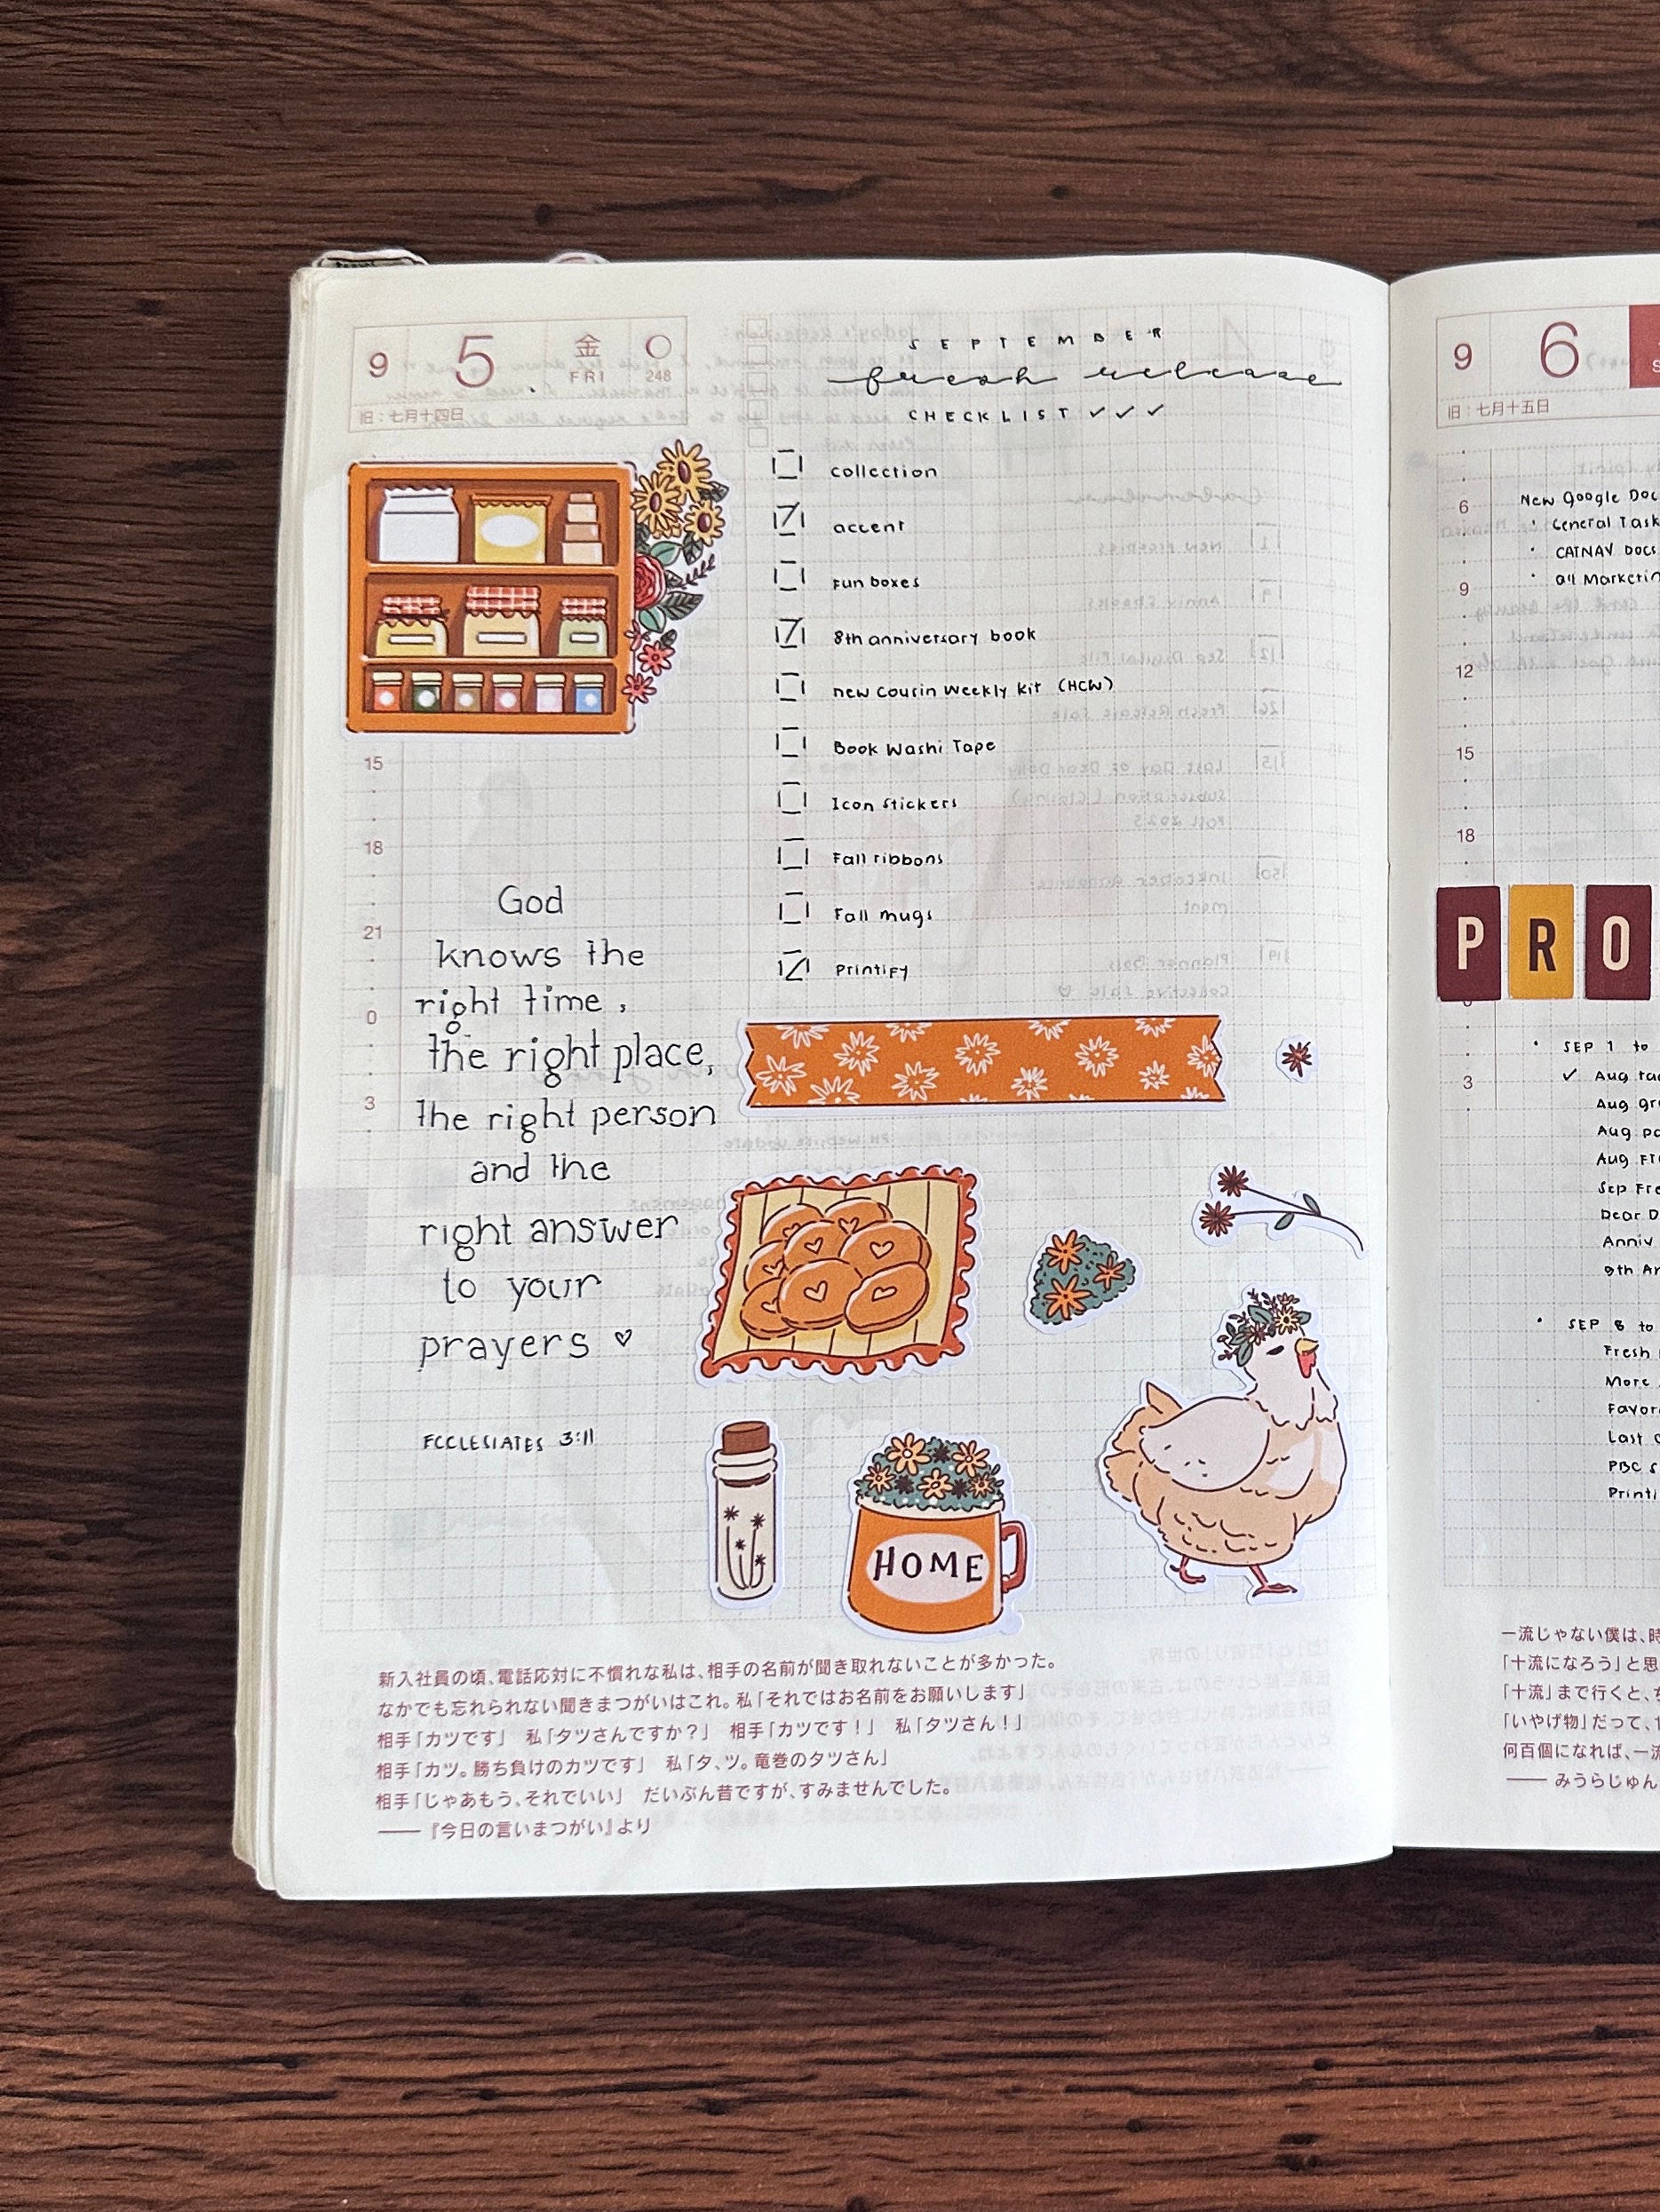 9 5 金 FRI 248
旧：七月十四日
SEPTEMBER
fresh release
CHECKLIST ✓ ✓ ✓
collection
accent
Fun boxes
8th anniversary book
new cousin weekly kit (HCW)
Book Washi Tape
Icon stickers
Fall ribbons
Fall mugs
Printify
15
18
21
0
3
God
knows the
right time,
the right place,
the right person
and the
right answer
to your
prayers ♡
ECCLESIATES 3:11
HOME
新入社員の頃、電話応対に不慣れな私は、相手の名前が聞き取れないことが多かった。
なかでも忘れられない聞きまつがいはこれ。私「それではお名前をお願いします」
相手「カツです」　私「タツさんですか？」　相手「カツです！」　私「タツさん！」
相手「カツ。勝ち負けのカツです」　私「タ、ツ。竜巻のタツさん」
相手「じゃあもう、それでいい」　だいぶん昔ですが、すみませんでした。
——『今日の言いまつがい』より
9 6
旧：七月十五日
6
9
12
15
18
3
New Google Doc
General Task
CATNAV Docs
all Marketin
PRO
SEP 1 to
✓ Aug
Aug
Aug
Aug
Sep Fre
Dear D
Anniv
SEP 8 to
Fresh
More
Favor
Last
PBC S
Printi
一流じゃない僕は、時
「十流になろう」と思
「十流」まで行くと、
「いやげ物」だって、
何百個になれば、一流
—— みうらじゅん